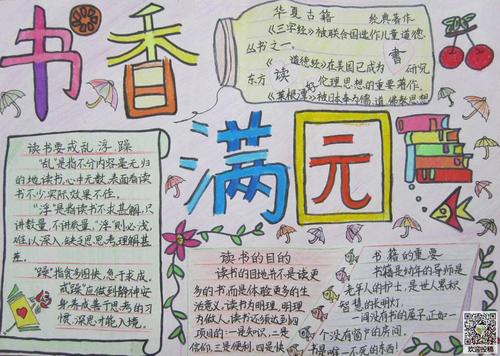 书香
满元
华夏古籍 经典著作
《三字经》被联合国选作儿童道德
丛书之一.
《道德经》在美国已成为 研究
东方 伦理思想的重要著作.
《菜根潭》被日本奉为儒、道、佛教思想
读好書
读书要戒乱、浮、躁
"乱"是指不分内容毫无归
的地读书,心中无数,表面看读
书不少,实际效果不住.
"浮"是指读书不求甚解,只
讲数量,不讲质量."浮"则必浅,
难以深入,缺乏思考理解甚
差.
"躁"指贪多图快,急于求成,
戒"躁"应做到静神安
身,养成善于思考的习
惯,深思才能入境.
读书的目的
读书的目地并不是读更
多的书,而是体验更多的生
活意义,读书为明理,明理
为做人,读书必须达到四
项目的:一是知识、二是
信仰、三是便利、四是快
书籍的重要
书籍是幼年的导师是
老年人的护士,是世人累积
智慧的长明灯.
一间没有书的屋子,正如一
个没有窗户的房间.
书是唯一不死的东西!
欢迎投稿